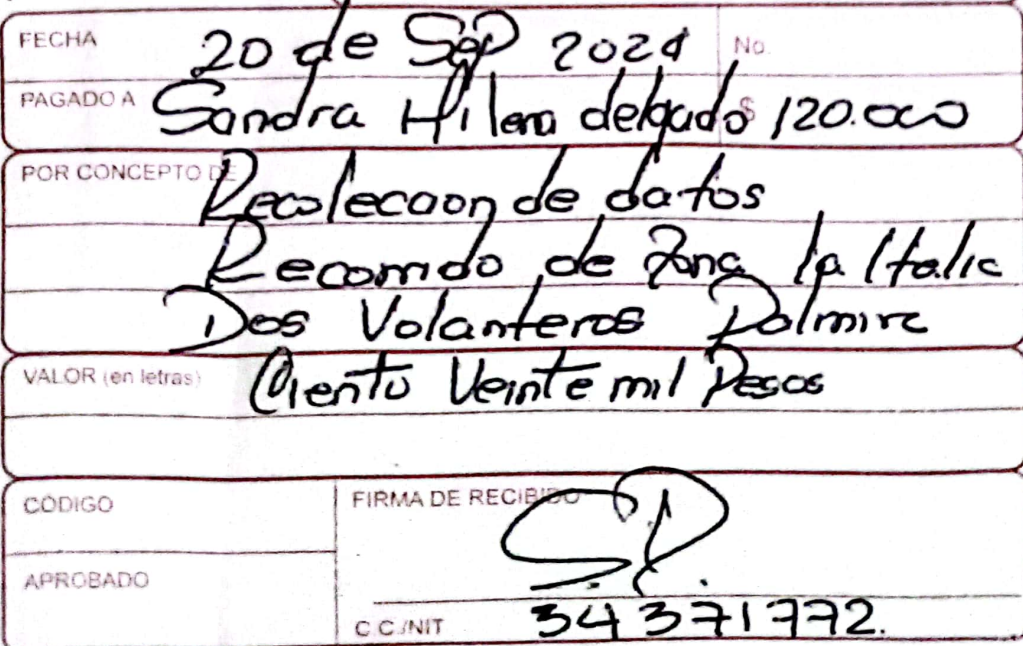 FECHA 20 de Sep 2024 No.
PAGADO A Sandra Milena delgado $ 120.000
POR CONCEPTO DE Recoleccion de datos
Recorrido de Zona la Italia
Dos Volanteros Palmira
VALOR (en letras) Ciento Veinte mil Pesos
CÓDIGO
FIRMA DE RECIBIDO S.D.
APROBADO
C.C./NIT 34371772.